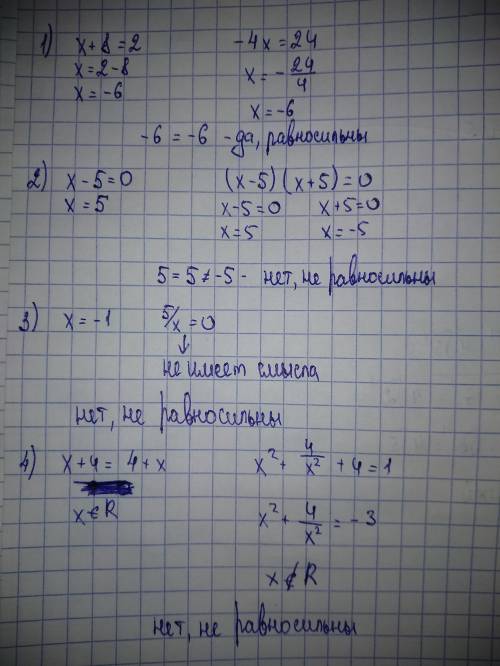 1) x+8=2     -4x=24
x=2-8     x=-24/4
x=-6     x=-6
-6 = -6 - да, равносильны
2) x-5=0     (x-5)(x+5)=0
x=5     x-5=0     x+5=0
x=5     x=-5
5=5≠-5 - нет, не равносильны
3) x=-1     5/x=0
↓
не имеет смысла
нет, не равносильны
4) x+4=4+x     x²+4/x²+4=1
x∈R     x²+4/x²=-3
x∉R
нет, не равносильны